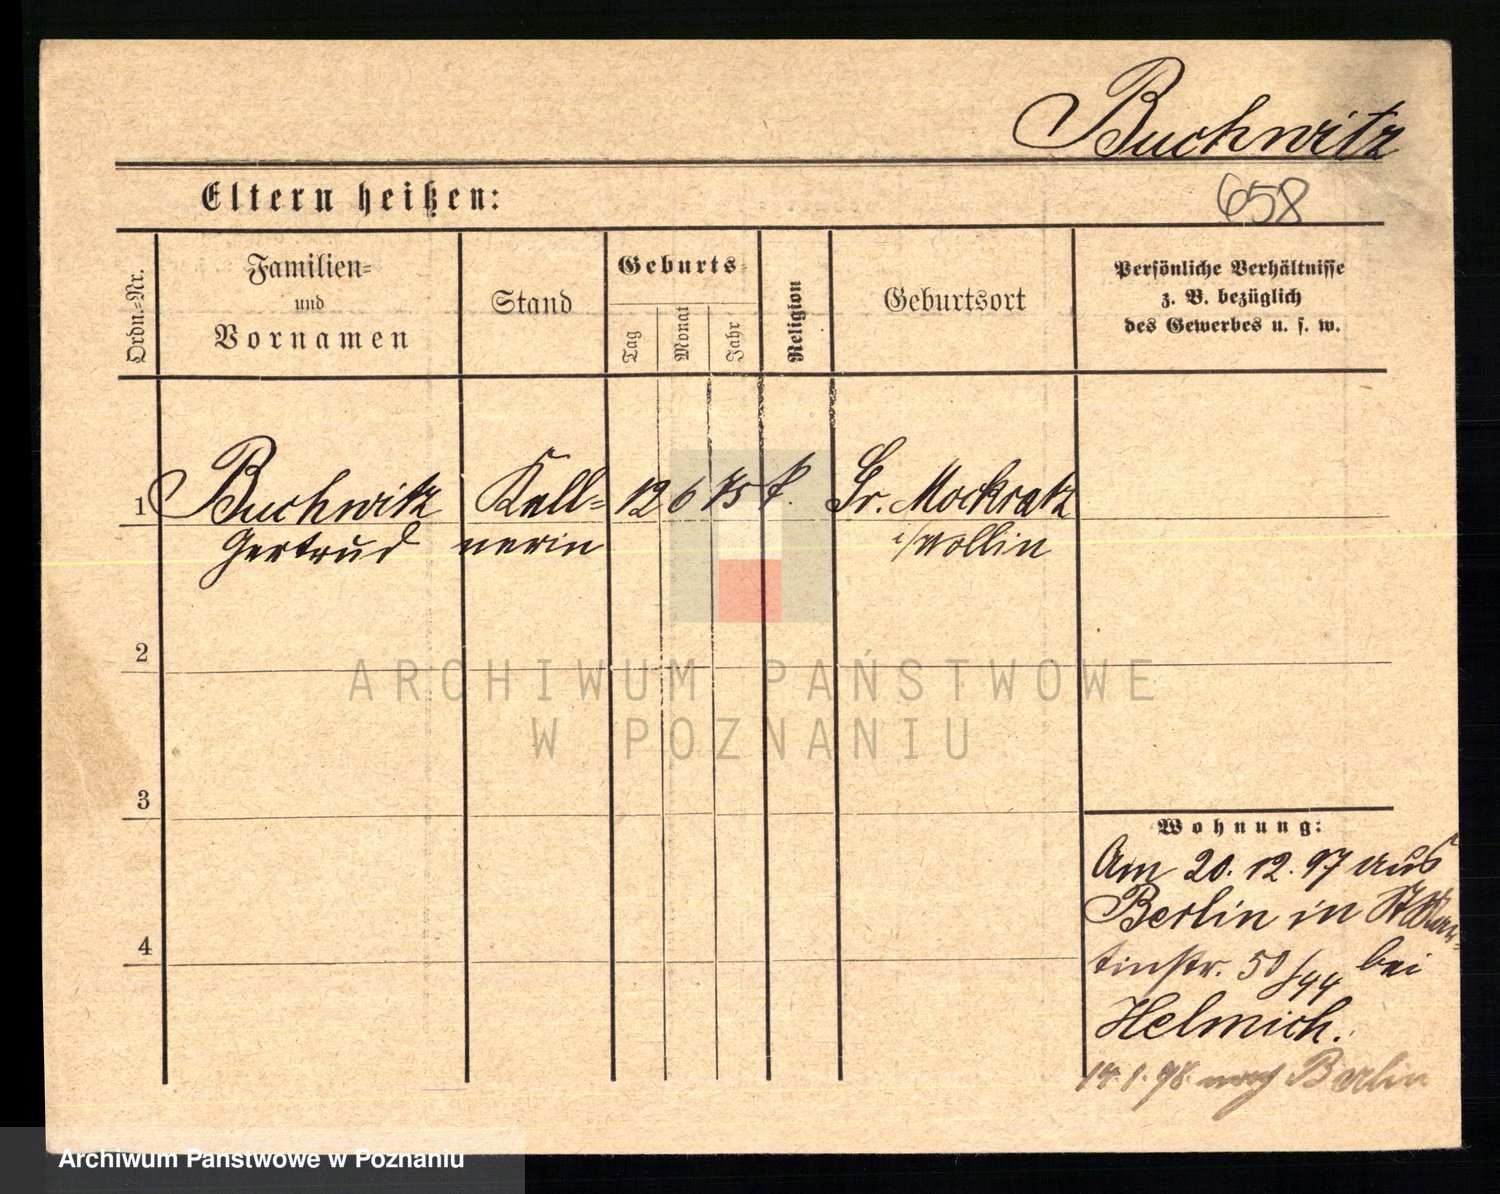 Buchwitz
658
Eltern heißen:
Ordn.-Nr.
Familien-
und
Vornamen
Stand
Geburts-
Tag
Monat
Jahr
Religion
Geburtsort
Persönliche Verhältnisse
z. B. bezüglich
des Gewerbes u. s. w.
1 Buchwitz Kell- 12 6 75 Gr. Mockratz
Gertrud nerin i/Wollin
2
3
4
Wohnung:
Am 20.12.97 aus
Berlin in St Mar-
tinstr. 50/44 bei
Helmich.
14.1.98. nach Berlin
ARCHIWUM PAŃSTWOWE
W POZNANIU
Archiwum Państwowe w Poznaniu